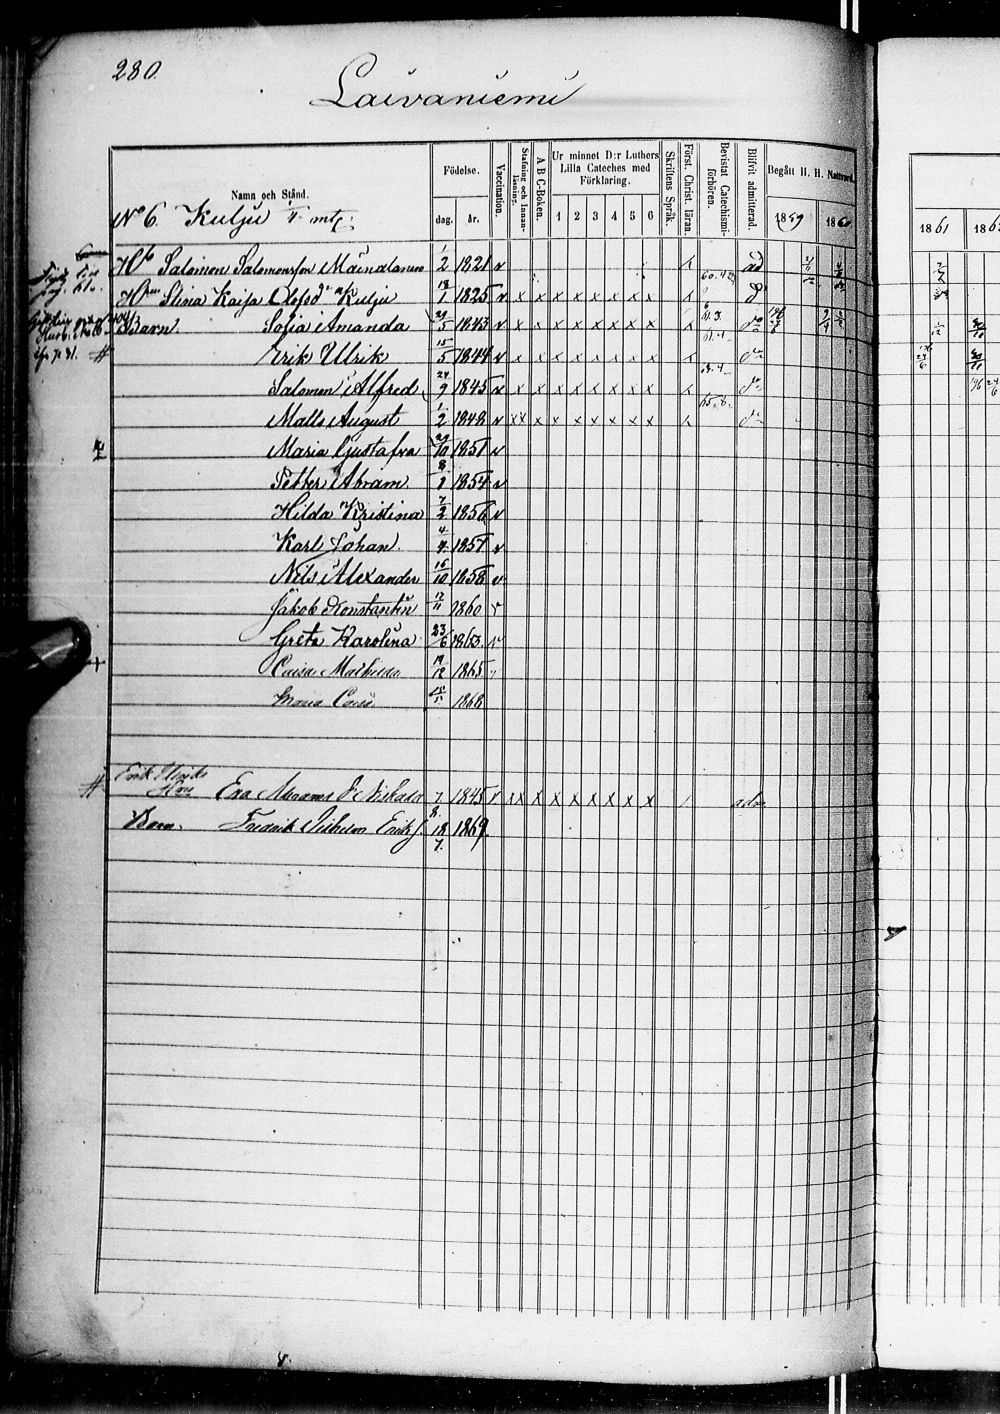 280.
Laivaniemi
Namn och Stånd.
Födelse.
dag. år.
Vaccination.
Stafning och Innanläsning.
A B C-Boken.
Ur minnet D:r Luthers Lilla Cateches med Förklaring.
1 2 3 4 5 6
Skriftens Språk.
Först. Christ. läran.
Bevistat Catechismiförhören.
Blifvit admitterad.
Begått H. H. Nattvard.
1859 1860
1861 186
No 6. Kulju
Salomon Salomonsson 1/2 1821 v
Stina Kaisa Olofsdr Kulju 18/1 1825 v x x x x x x x x
Barn Sofia Amanda 29/5 1843 v x x x x x x x x
Erik Ulrik 15/5 1844 v x x x x x x x x
Salomon Alfred 24/9 1845 v x x x x x x x x
Matts August 1/2 1848 v x x x x x x x x x
Maria Gustafva 29/10 1851 v
Petter Abram 8/1 1854 v
Hilda Kristina 7/2 1856 v
Karl Johan 4/4 1857 v
Nils Alexander 16/10 1858 v
Jakob Konstantin 17/11 1860 v
Greta Karolina 23/6 1863 v
Mathilda 19/12 1865 v
Maria 1868
Erik Ulriks
Hru Eva Abrams dr Niskala 7/8 1845 v x x x x x x x x x adm
Barn. Fredrik Vilhelm Eriks. 18/7 1869